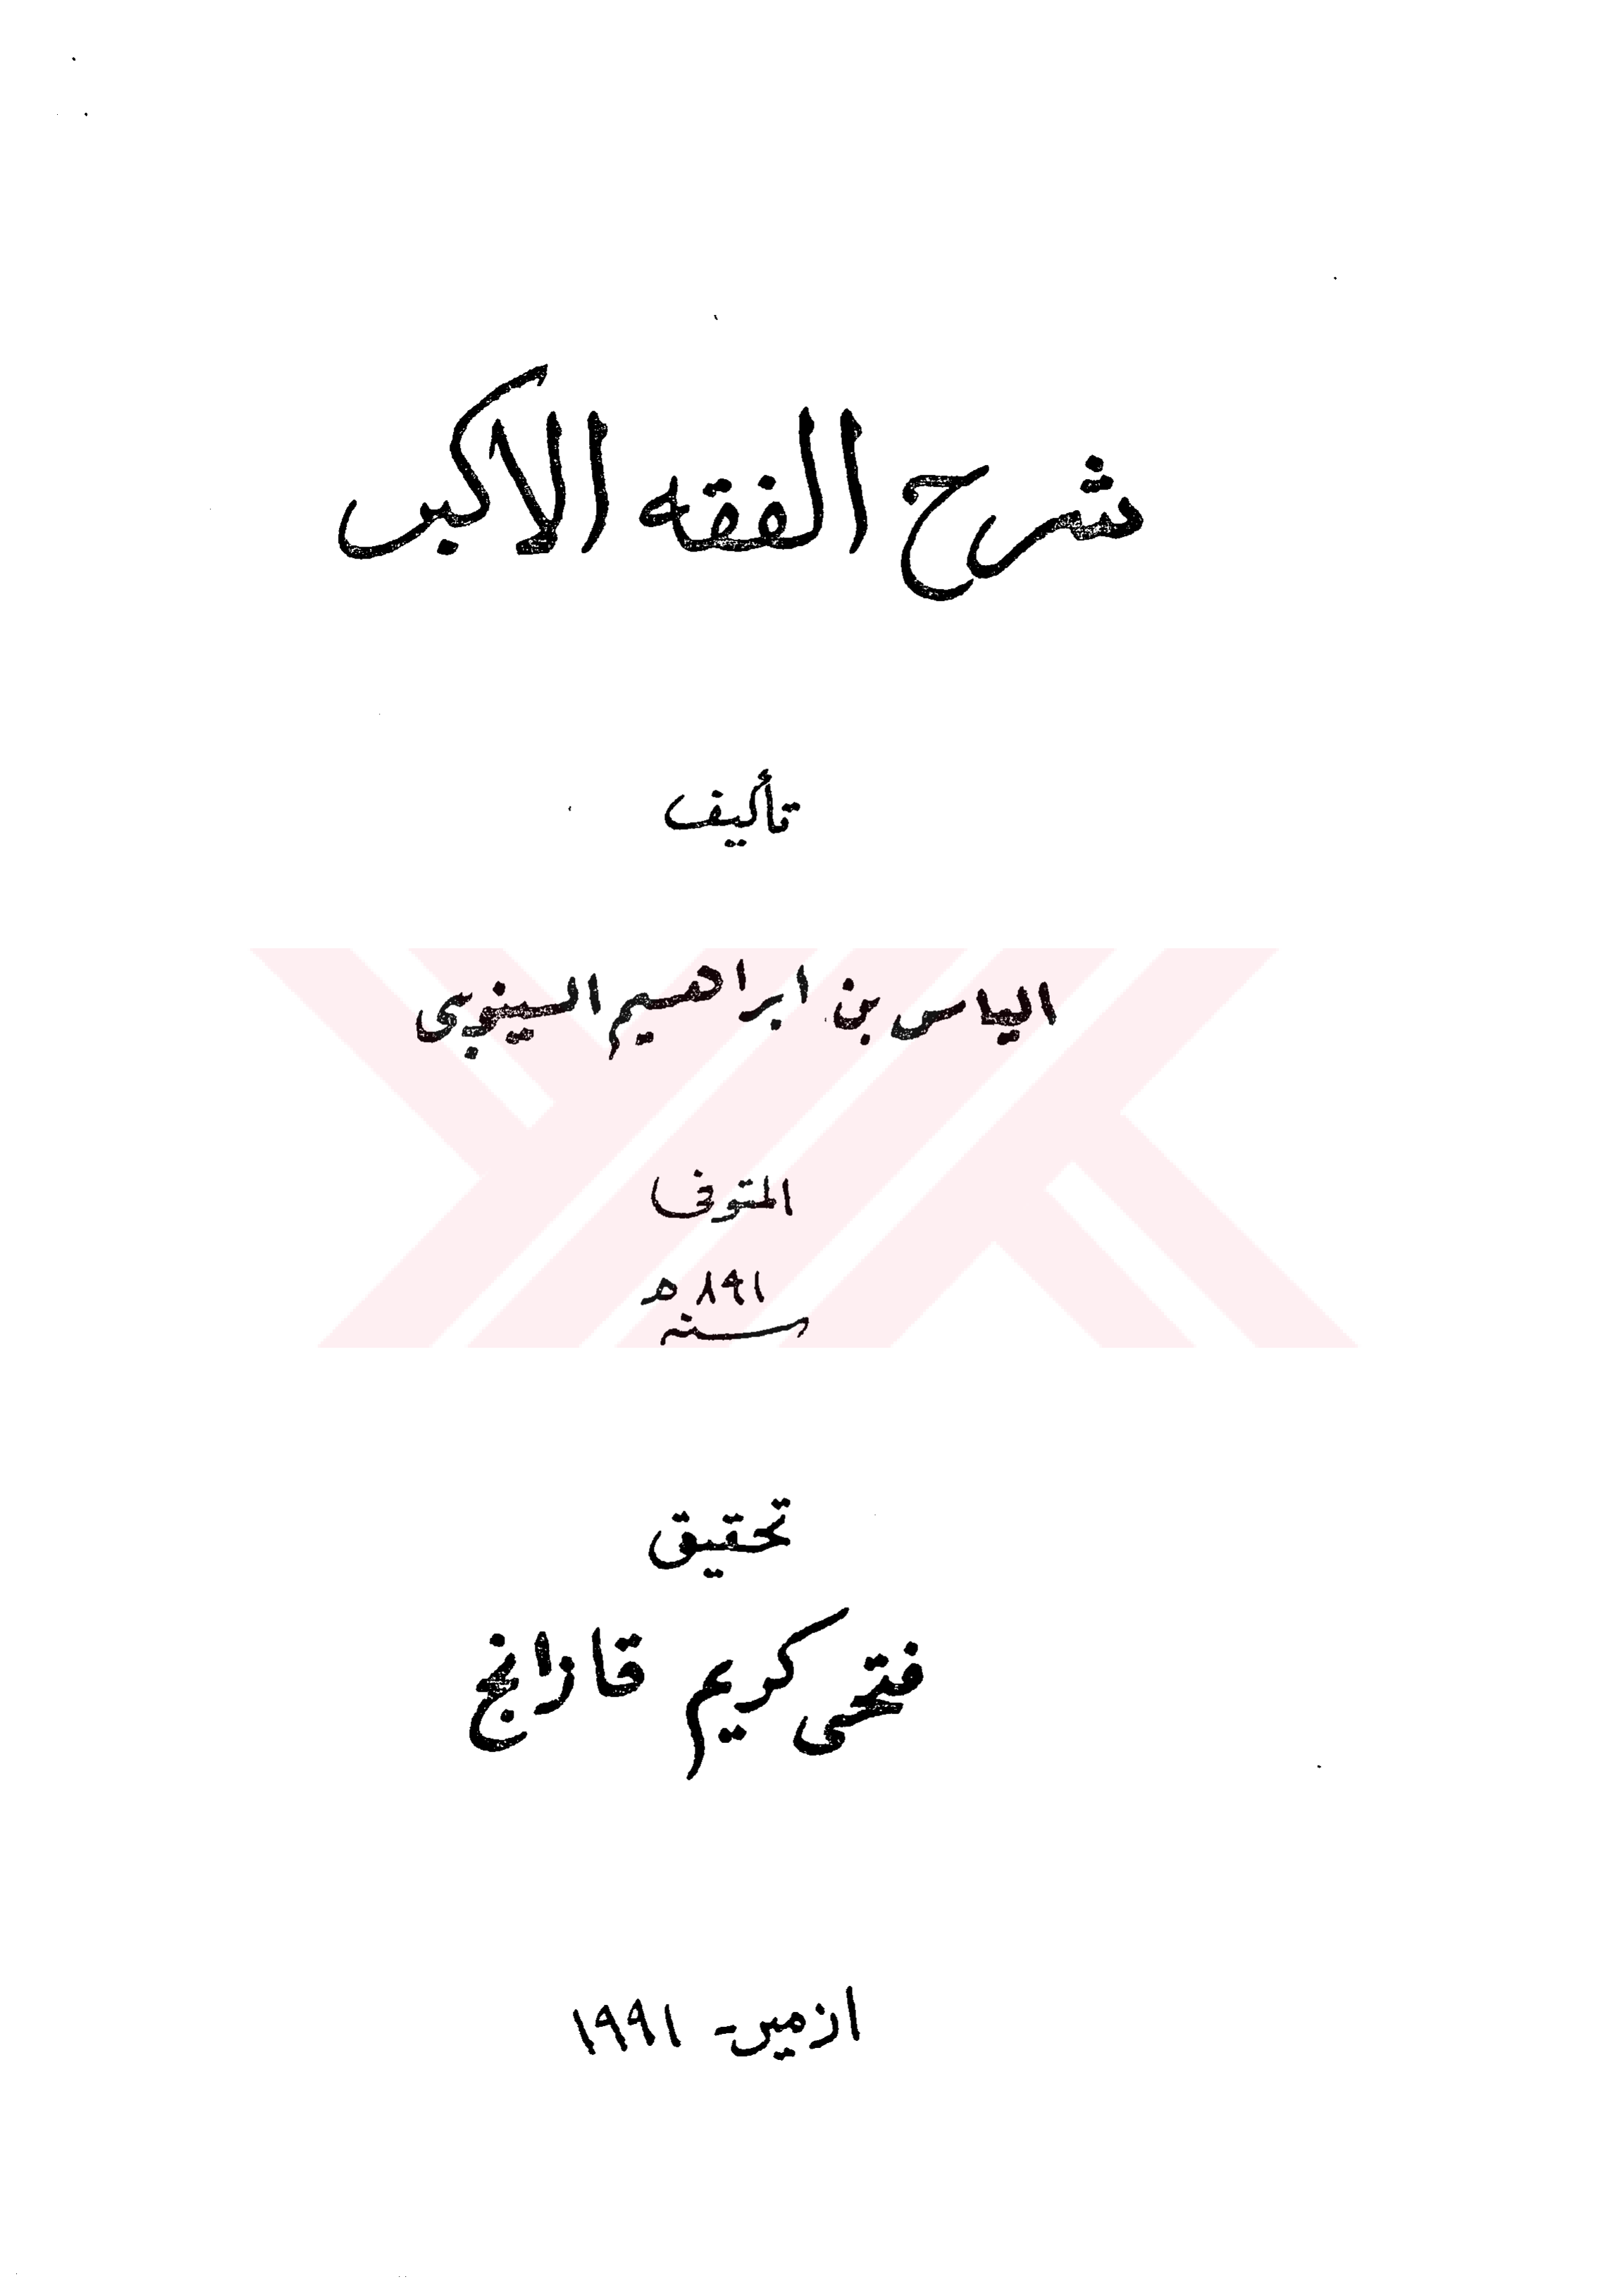 شرح الفقه الاكبر
تأليف
الياس بن ابراهيم السينوبى
المتوفى
٨٩١ ه
سنه
تحقيق
فتحى كريم قازانج
ازمير - ١٩٩١